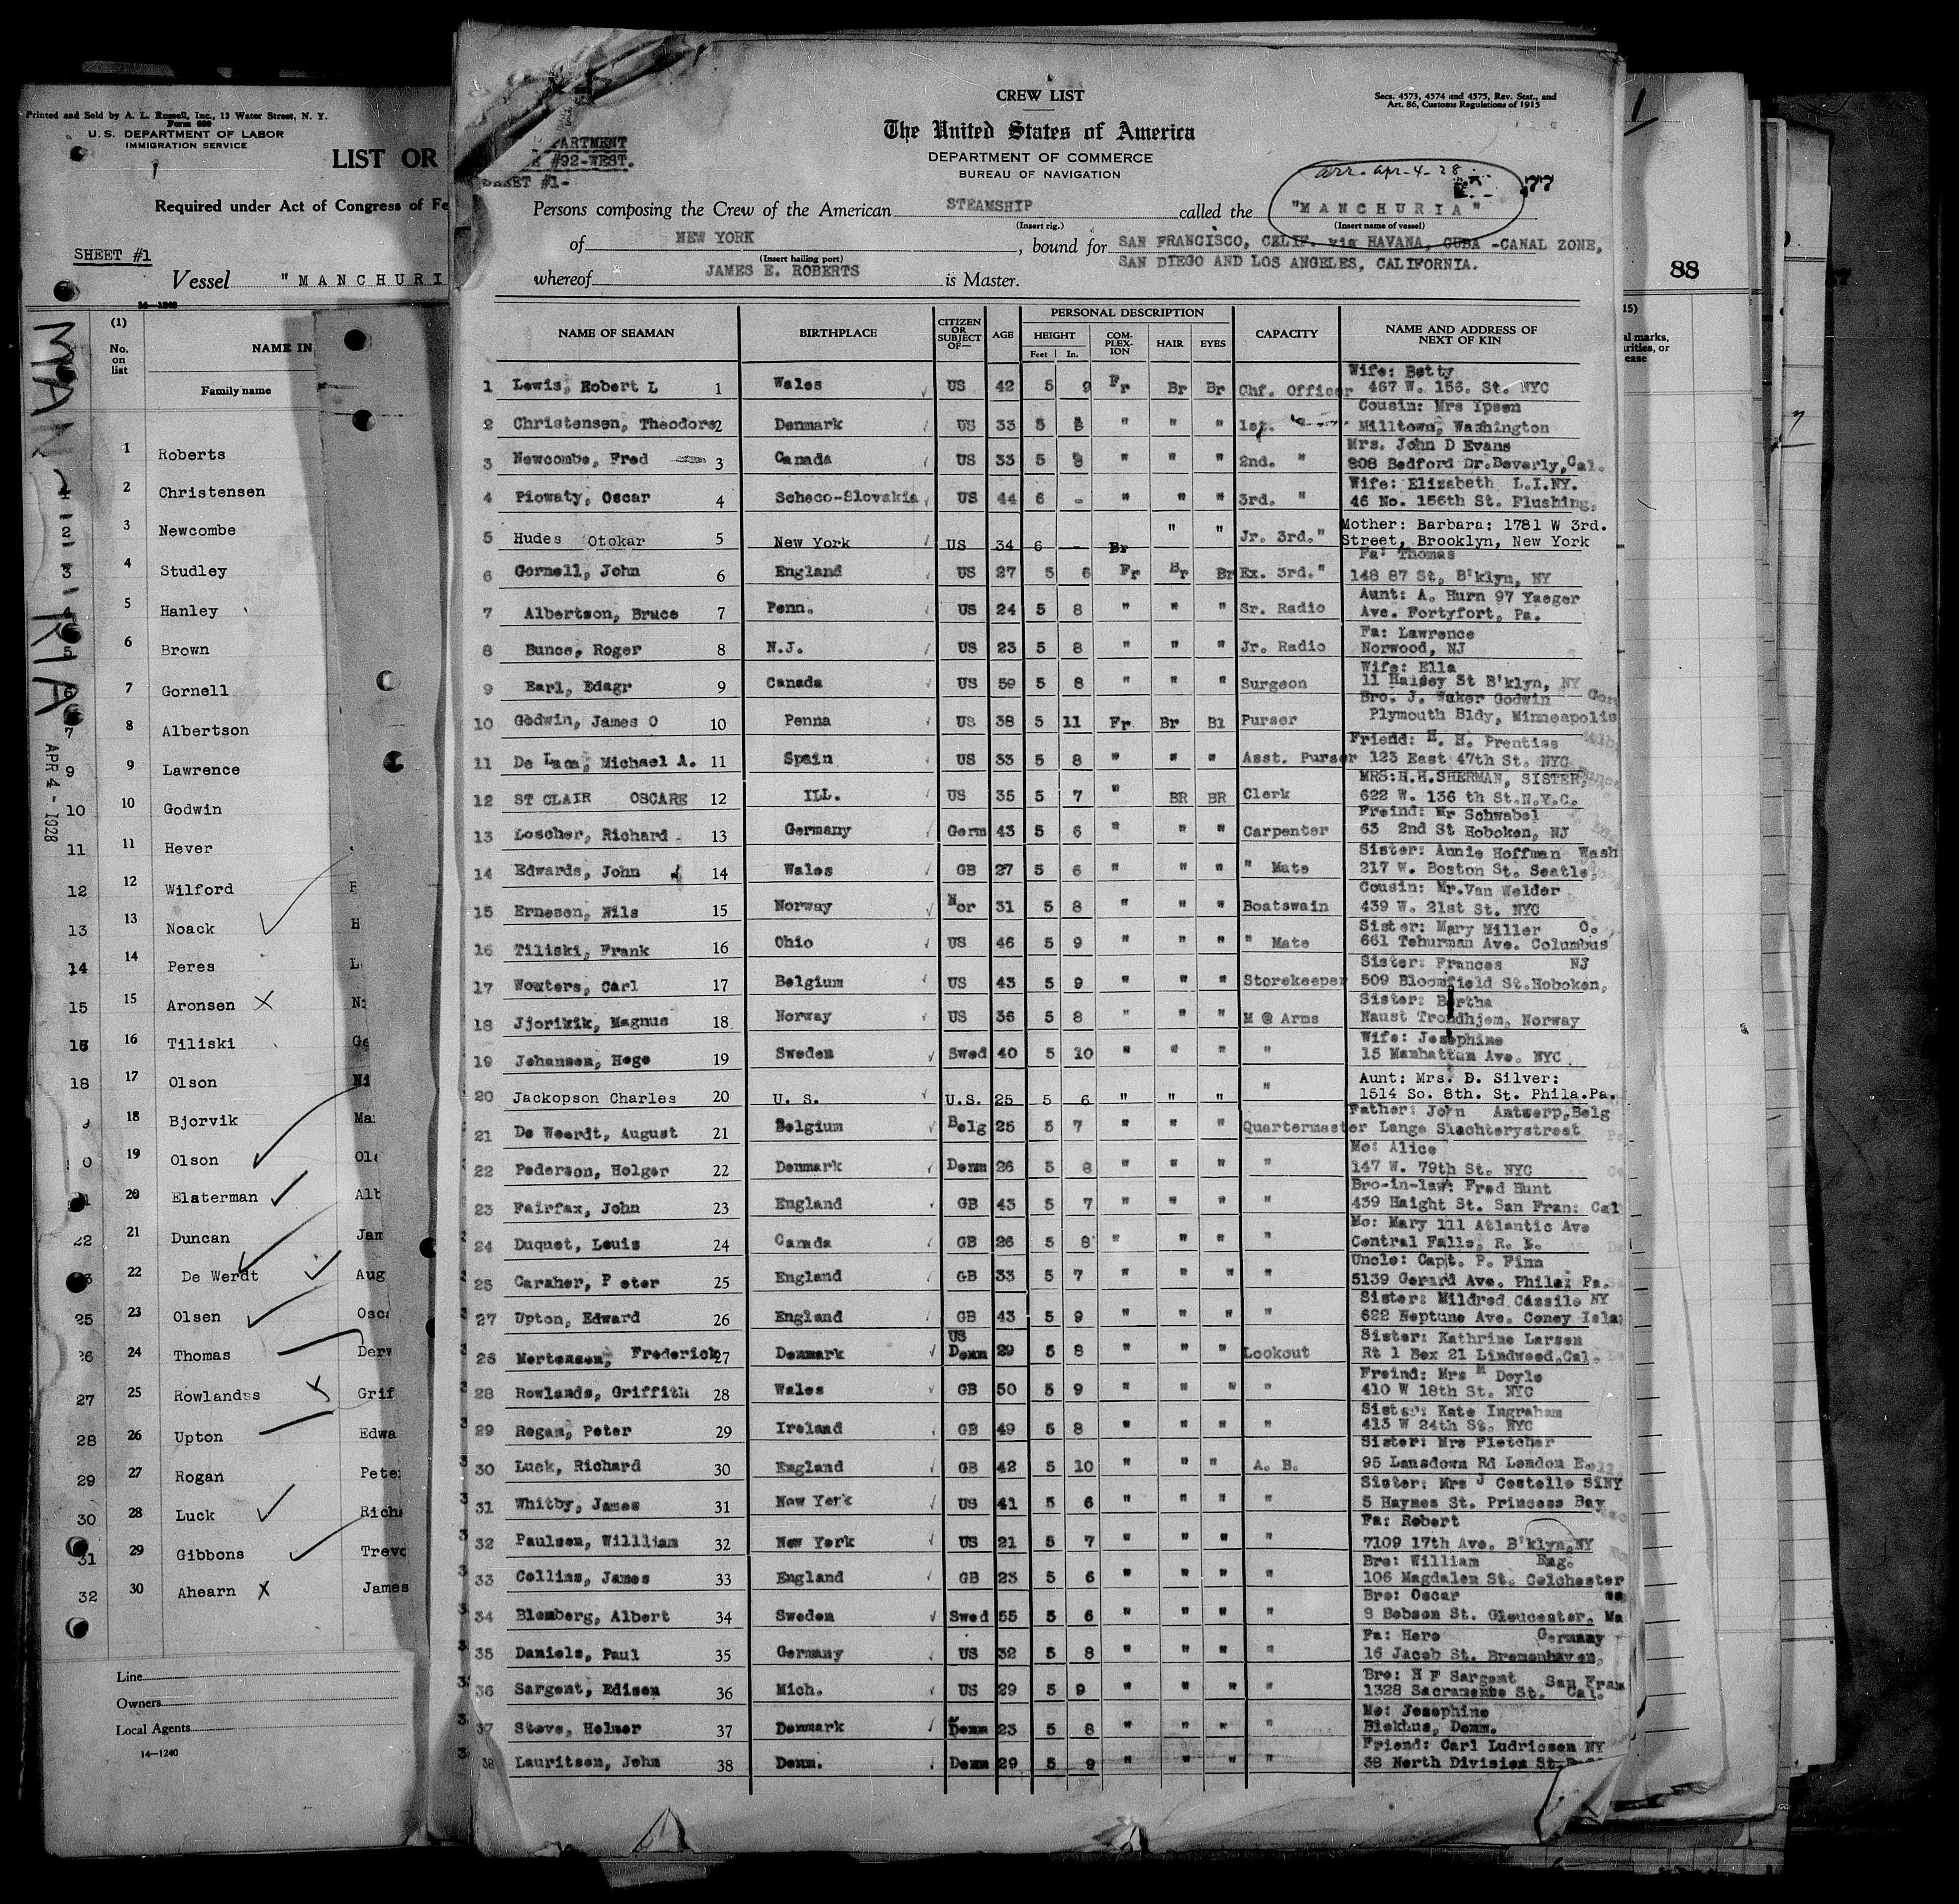 Printed and Sold by A. L. Russell, Inc., 13 Water Street, N. Y.
Form 680
U. S. DEPARTMENT OF LABOR
IMMIGRATION SERVICE
LIST OR
Required under Act of Congress of Fe
SHEET #1
Vessel "MANCHURI
MAN RIA
APR 4 - 1928
(1)
No. on list
NAME IN
Family name
1 Roberts
2 Christensen
3 Newcombe
4 Studley
5 Hanley
6 Brown
7 Gornell
8 Albertson
9 Lawrence
10 Godwin
11 Hever
12 Wilford
13 Noack H
14 Peres
15 Aronsen X
16 Tiliski Ge
17 Olson Ni
18 Bjorvik Ma
19 Olson
20 Elsterman Alb
21 Duncan Jam
22 De Werdt Aug
23 Olsen Osc
24 Thomas Derw
25 Rowlandss Grif
26 Upton Edwa
27 Rogan Pete
28 Luck Rich
29 Gibbons Trevo
30 Ahearn X James
Line
Owners
Local Agents
14—1240
CREW LIST
Secs. 4573, 4574 and 4575, Rev. Stat., and
Art. 86, Customs Regulations of 1915
The United States of America
DEPARTMENT OF COMMERCE
BUREAU OF NAVIGATION
PARTMENT
#92-WEST.
SHEET #1-
arr. apr-4-28
77
Persons composing the Crew of the American STEAMSHIP called the "MANCHURIA"
(Insert rig.) (Insert name of vessel)
of NEW YORK, bound for SAN FRANCISCO, CALIF. via HAVANA, CUBA -CANAL ZONE,
(Insert hailing port)
SAN DIEGO AND LOS ANGELES, CALIFORNIA.
whereof JAMES E. ROBERTS is Master.
88
NAME OF SEAMAN BIRTHPLACE CITIZEN OR SUBJECT OF— AGE PERSONAL DESCRIPTION CAPACITY NAME AND ADDRESS OF NEXT OF KIN
HEIGHT COMPLEXION HAIR EYES
Feet In.
1 Lewis, Robert L 1 Wales US 42 5 9 Fr Br Br Chf. Officer Wife: Betty
467 W. 156. St. NYC
2 Christensen, Theodore 2 Denmark US 33 5 8 " " " 1st. Cousin: Mrs Ipsen
Milltown, Washington
3 Newcombe, Fred 3 Canada US 33 5 8 " " " 2nd. " Mrs. John D Evans
808 Bedford Dr. Beverly, Cal.
4 Piowaty, Oscar 4 Scheco-Slovakia US 44 6 - " " " 3rd. " Wife: Elizabeth L.I.NY.
46 No. 156th St. Flushing,
5 Hudes Otokar 5 New York US 34 6 - Br " " Jr. 3rd." Mother: Barbara: 1781 W 3rd.
Street, Brooklyn, New York
6 Gornell, John 6 England US 27 5 6 Fr Br Br Ex. 3rd." Fa: Thomas
148 87 St, B'klyn, NY
7 Albertson, Bruce 7 Penn. US 24 5 8 " " " Sr. Radio Aunt: A. Hurn 97 Yaeger
Ave. Fortyfort, Pa.
8 Bunce, Roger 8 N.J. US 23 5 8 " " " Jr. Radio Fa: Lawrence
Norwood, NJ
9 Earl, Edagr 9 Canada US 59 5 8 " " " Surgeon Wife: Ella
11 Halsey St B'klyn, NY
10 Godwin, James O 10 Penna US 38 5 11 Fr Br Bl Purser Bro. J. Waker Godwin
Plymouth Bldy, Minneapolis
11 De Laca, Michael A. 11 Spain US 33 5 8 " " " Asst. Purser Friend: H. H. Prentiss
123 East 47th St. NYC
12 ST CLAIR OSCARE 12 ILL. US 35 5 7 " BR BR Clerk MRS:H.H.SHERMAN, SISTER,
622 W. 136 th St.N.Y.C.
13 Loscher, Richard 13 Germany Germ 43 5 6 " " " Carpenter Freind: Mr Schwabel
63 2nd St Hoboken, NJ
14 Edwards, John 14 Wales GB 27 5 6 " " " " Mate Sister: Annie Hoffman Wash
217 W. Boston St. Seatle,
15 Ernesen, Nils 15 Norway Nor 31 5 8 " " " Boatswain Cousin: Mr. Van Welder
439 W. 21st St. NYC
16 Tiliski, Frank 16 Ohio US 46 5 9 " " " " Mate Sister: Mary Miller O.
661 Tehurman Ave. Columbus
17 Wouters, Carl 17 Belgium US 43 5 9 " " " Storekeeper Sister: Frances NJ
509 Bloomfield St. Hoboken,
18 Jjorikik, Magnus 18 Norway US 36 5 8 " " " M @ Arms Sister: Bertha
Naust Trondhjem, Norway
19 Johansen, Hege 19 Sweden Swed 40 5 10 " " " " Wife: Josephine
15 Manhattan Ave. NYC
20 Jackopson Charles 20 U. S. U.S. 25 5 6 " " " " Aunt: Mrs. D. Silver:
1514 So. 8th. St. Phila.Pa.
21 De Weerdt, August 21 Belgium Belg 25 5 7 " " " Quartermaster Father: John Antwerp, Belg
Lange Slachterystreet
22 Pederson, Holger 22 Denmark Denm 26 5 8 " " " " Mo: Alice
147 W. 79th St. NYC
23 Fairfax, John 23 England GB 43 5 7 " " " " Bro-in-law: Fred Hunt
439 Haight St. San Fran: Cal
24 Duquet, Louis 24 Canada GB 26 5 8 " " " " Mo: Mary 111 Atlantic Ave
Central Falls, R. I.
25 Caraher, Peter 25 England GB 33 5 7 " " " " Uncle: Capt. P. Finn
5139 Gerard Ave. Phila: Pa.
27 Upton, Edward 26 England GB 43 5 9 " " " " Sister: Mildred Cassile NY
622 Neptune Ave. Coney Isla
26 Mortensen, Frederick 27 Denmark US Denm 29 5 8 " " " Lookout Sister: Kathrine Larsen
Rt 1 Box 21 Lindweed, Cal.
28 Rowlands, Griffith 28 Wales GB 50 5 9 " " " " Freind: Mrs M Doyle
410 W 18th St. NYC
29 Rogan, Peter 29 Ireland GB 49 5 8 " " " " Sister: Kate Ingraham
413 W 24th St. NYC
30 Luck, Richard 30 England GB 42 5 10 " " " A. B. Sister: Mrs Fletcher
95 Lansdown Rd London E.
31 Whitby, James 31 New York US 41 5 6 " " " " Sister: Mrs J Costello SINY
5 Haynes St. Princess Bay
32 Paulsen, Willliam 32 New York US 21 5 7 " " " " Fa: Robert
7109 17th Ave. B'klyn, NY
33 Collins, James 33 England GB 23 5 6 " " " " Bro: William Eng.
106 Magdalen St. Colchester
34 Blomberg, Albert 34 Sweden Swed 55 5 6 " " " " Bro: Oscar
8 Bobson St. Gloucester, Ma
35 Daniels, Paul 35 Germany US 32 5 8 " " " " Fa: Hero Germany
16 Jacob St. Bremenhaven,
36 Sargent, Edison 36 Mich. US 29 5 9 " " " " Bro: H F Sargent San Fran
1328 Sacramento St. Cal.
37 Steve, Helmer 37 Denmark Denm 23 5 8 " " " " Mo: Josephine
Blokhus, Denm.
38 Lauritsen, John 38 Denm. Denm 29 5 9 " " " " Friend: Carl Ludricsen NY
38 North Division St.